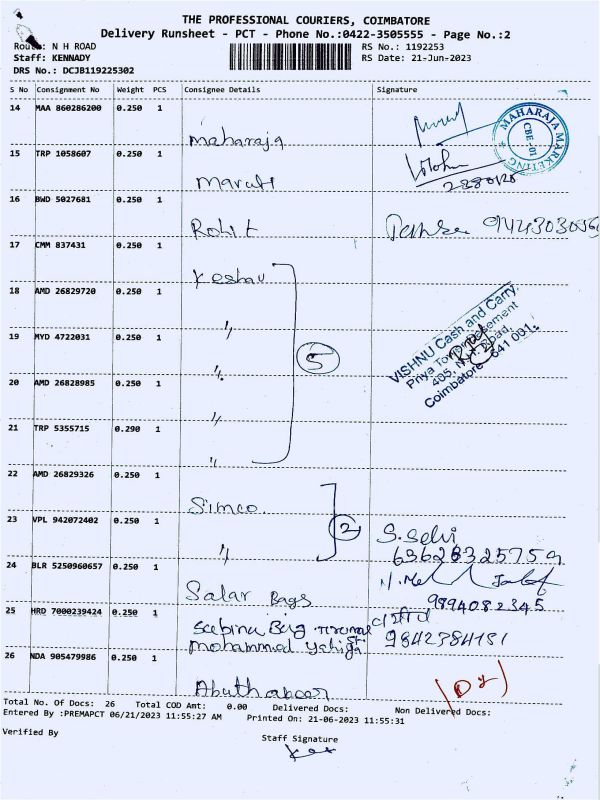 THE PROFESSIONAL COURIERS, COIMBATORE
Delivery Runsheet - PCT - Phone No.:0422-3505555 - Page No.:2
Route: N H ROAD RS No.: 1192253
Staff: KENNADY RS Date: 21-Jun-2023
DRS No.: DCJB119225302
S No Consignment No Weight PCS Consignee Details Signature
14 MAA 860286200 0.250 1
Maharaja
MAHARAJA MARKETING CBE-01
15 TRP 1058607 0.250 1
Maruti
16 BWD 5027681 0.250 1
Rohit
17 CMM 837431 0.250 1
Keshav
18 AMD 26829720 0.250 1
"
VISHNU Cash and Carry.
Priya Tower
405, N.H. Road,
Coimbatore - 641 001.
19 MYD 4722031 0.250 1
" 5
20 AMD 26828985 0.250 1
"
21 TRP 5355715 0.290 1
"
22 AMD 26829326 0.250 1
Simco
23 VPL 942072402 0.250 1
" 2
S. Selvi
24 BLR 5250960657 0.250 1
Salar Bags
9894082345
25 HRD 7000239424 0.250 1
Sabina Beig
Mohammed
9842384181
26 NDA 905479986 0.250 1
Abuthaheer
Total No. Of Docs: 26 Total COD Amt: 0.00 Delivered Docs: Non Delivered Docs:
Entered By :PREMAPCT 06/21/2023 11:55:27 AM Printed On: 21-06-2023 11:55:31
Verified By
Staff Signature